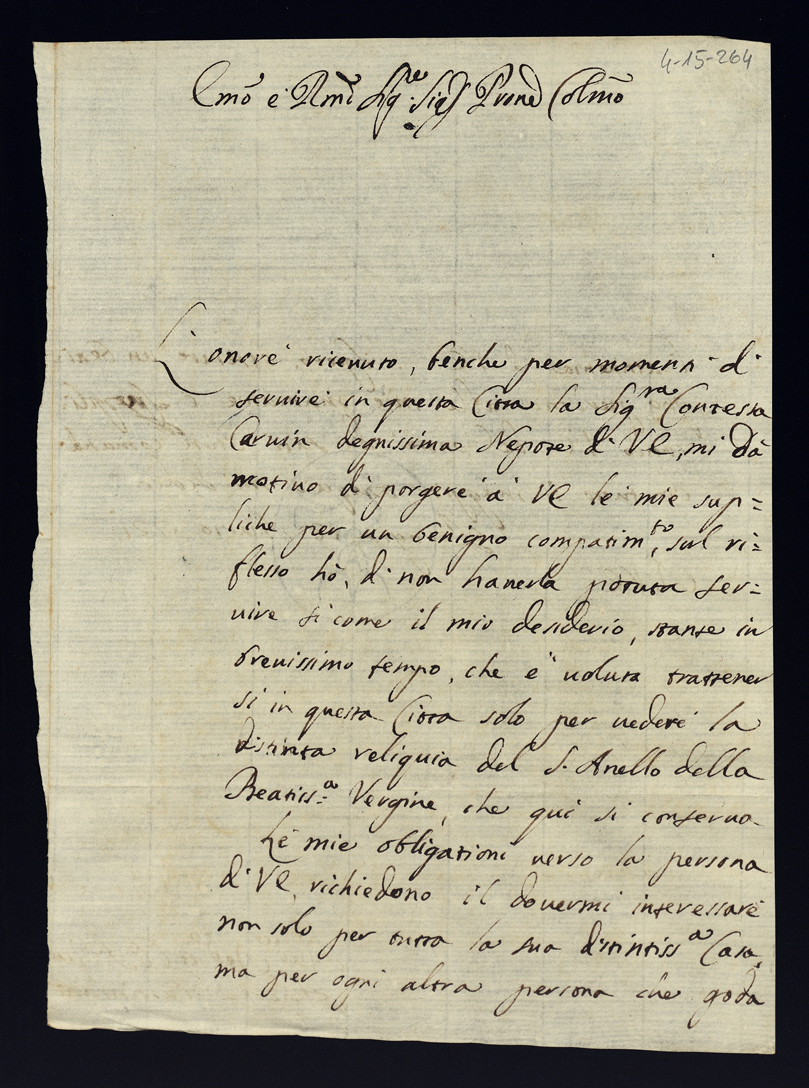 4-15-264
Emo è Rmo Sigre Sigr Prone Colmo
L'onore riceuuto, benche per momenti di
seruire in questa Citta la Sigra Contessa
Caruin degnissima Nepote di VE, mi dà
motiuo di porgere à VE le mie sup=
liche per un benigno compatimto, sul ri=
flesso hò, di non hauerla potuta ser=
uire si come il mio desiderio, stante in
breuissimo tempo, che è uoluta trattener
si in questa Citta solo per uedere la
distinta reliquia del S. Anello della
Beatissa Vergine, che qui si conserua
Le mie obligationi uerso la persona
di VE, richiedono il douermi interessare
non solo per tutta la sua distintissa Casa,
ma per ogni altra persona che goda